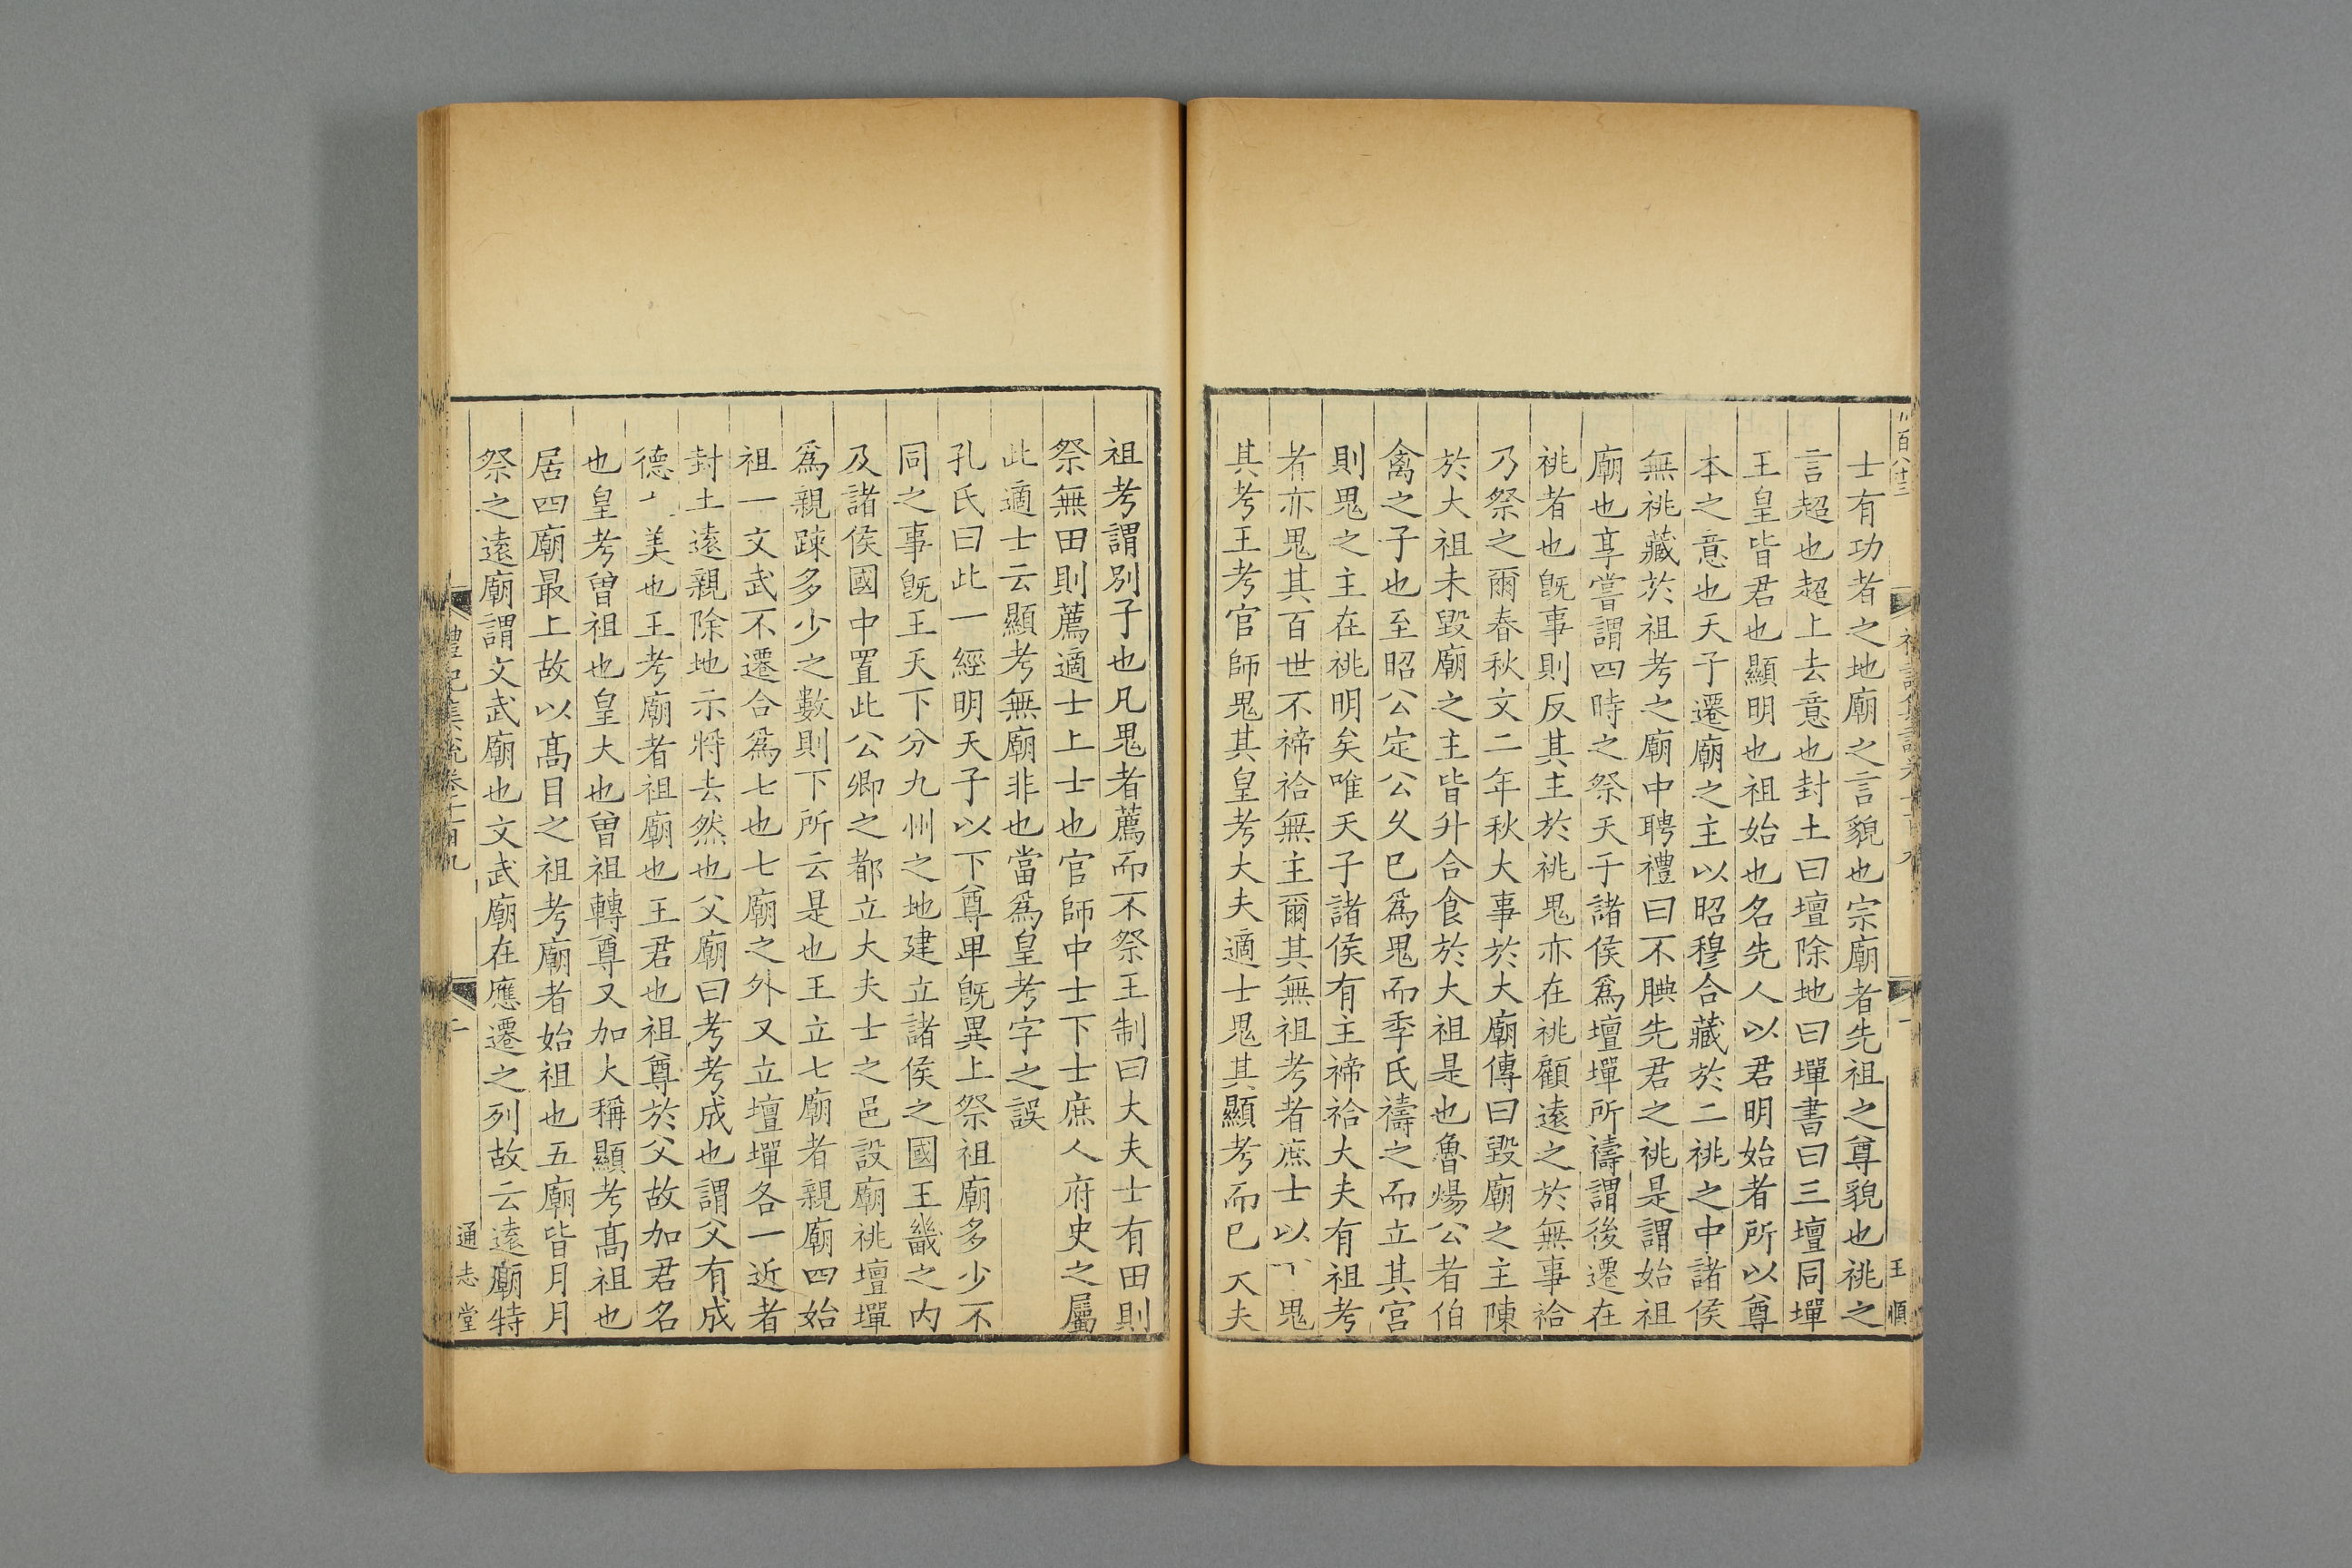 士有功者之地廟之言貌也宗廟者先祖之尊貌也祧之
言超也超上去意也封土曰壇除地曰墠書曰三壇同墠
王皇皆君也顯明也祖始也名先人以君明始者所以尊
本之意也天子遷廟之主以昭穆合藏於二祧之中諸侯
無祧藏於祖考之廟中聘禮曰不腆先君之祧是謂始祖
廟也享嘗謂四時之祭天子諸侯爲壇墠所禱謂後遷在
祧者也旣事則反其主於祧鬼亦在祧顧遠之於無事祫
乃祭之爾春秋文二年秋大事於大廟傳曰毀廟之主陳
於大祖未毀廟之主皆升合食於大祖是也魯煬公者伯
禽之子也至昭公定公久巳爲鬼而季氏禱之而立其宫
則鬼之主在祧明矣唯天子諸侯有主禘祫大夫有祖考
者亦鬼其百世不禘祫無主爾其無祖考者庶士以下鬼
其考王考官師鬼其皇考大夫適士鬼其顯考而巳大夫
王順
祖考謂别子也凡鬼者薦而不祭王制曰大夫士有田則
祭無田則薦適士上士也官師中士下士庶人府史之屬
此適士云顯考無廟非也當爲皇考字之誤
孔氏曰此一經明天子以下尊卑旣異上祭祖廟多少不
同之事旣王天下分九州之地建立諸侯之國王畿之内
及諸侯國中置此公卿之都立大夫士之邑設廟祧壇墠
爲親踈多少之數則下所云是也王立七廟者親廟四始
祖一文武不遷合爲七也七廟之外又立壇墠各一近者
封土遠親除地示將去然也父廟曰考考成也謂父有成
德之美也王考廟者祖廟也王君也祖尊於父故加君名
也皇考曾祖也皇大也曾祖轉尊又加大稱顯考髙祖也
居四廟最上故以髙目之祖考廟者始祖也五廟皆月月
祭之遠廟謂文武廟也文武廟在應遷之列故云遠廟特
禮記集說卷一百九
通志堂